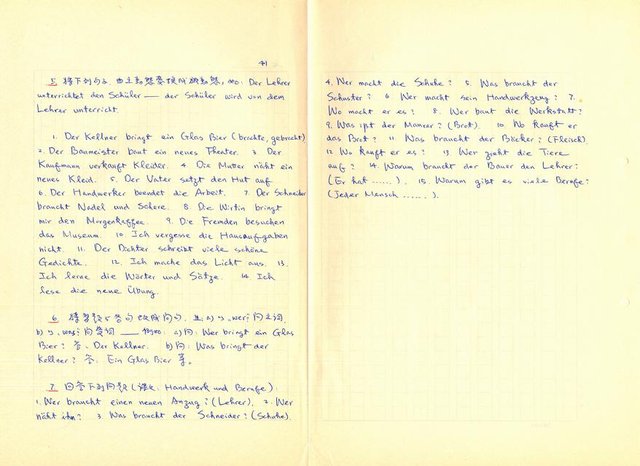 41
5 将下列句子由主动态变换成被动态, 例如: Der Lehrer
unterrichtet den Schüler — der Schüler wird von dem
Lehrer unterricht.
1. Der Kellner bringt ein Glas Bier (brachte, gebracht)
2. Der Baumeister baut ein neues Theater. 3. Der
Kaufmann verkauft Kleider. 4. Die Mutter näht ein
neues Kleid. 5. Der Vater setzt den Hut auf
6. Der Handwerker beendet die Arbeit. 7. Der Schneider
braucht Nadel und Schere. 8. Die Wirtin bringt
mir den Morgenkaffee. 9. Die Fremden besuchen
das Museum. 10. Ich vergesse die Hausaufgaben
nicht. 11. Der Dichter schreibt viele schöne
Gedichte. 12. Ich mache das Licht aus. 13.
Ich lerne die Wörter und Sätze. 14. Ich
lese die neue Übung.
6. 将 答句 成问句, a) 以 wer? 问主词
b) 以 was? 问受词 — 例如: a) 问: Wer bringt ein Glas
Bier? 答: Der Kellner. b) 问: Was bringt der
Kellner? 答: Ein Glas Bier 等。
7. 回答下列问题 (课文: Handwerk und Berufe).
1. Wer braucht einen neuen Anzug? (Lehrer). 2. Wer
näht ihn? 3. Was braucht der Schneider? (Schuhe).
4. Wer macht die Schuhe? 5. Was braucht der
Schuster? 6 Wer macht sein Handwerkzeug? 7.
Wo macht er es? 8. Wer baut die Werkstatt?
9. Was ißt der Maurer? (Brot). 10. Wo kauft er
das Brot? 11. Was braucht der Bäcker? (Fleisch)
12. Wo kauft er es? 13. Wer zieht die Tiere
auf? 14. Warum braucht der Bauer den Lehrer?
(Er hat ......). 15. Warum gibt es viele Berufe?
(Jeder Mensch ......).